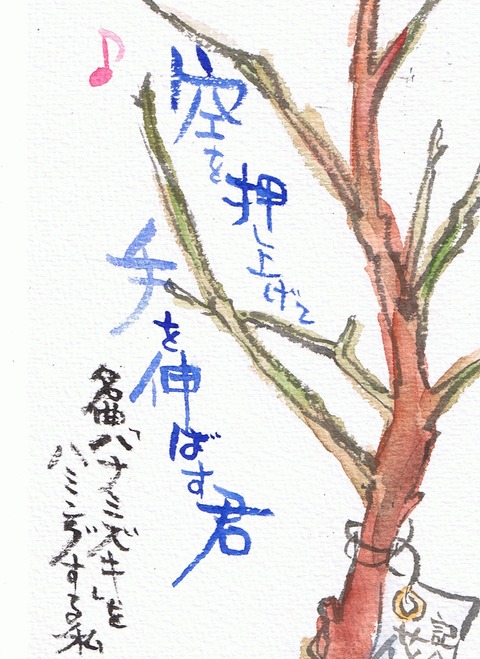 空を
押し上げて
手を伸ばす君
名曲「ハナミズキ」を
ハミングする私
記